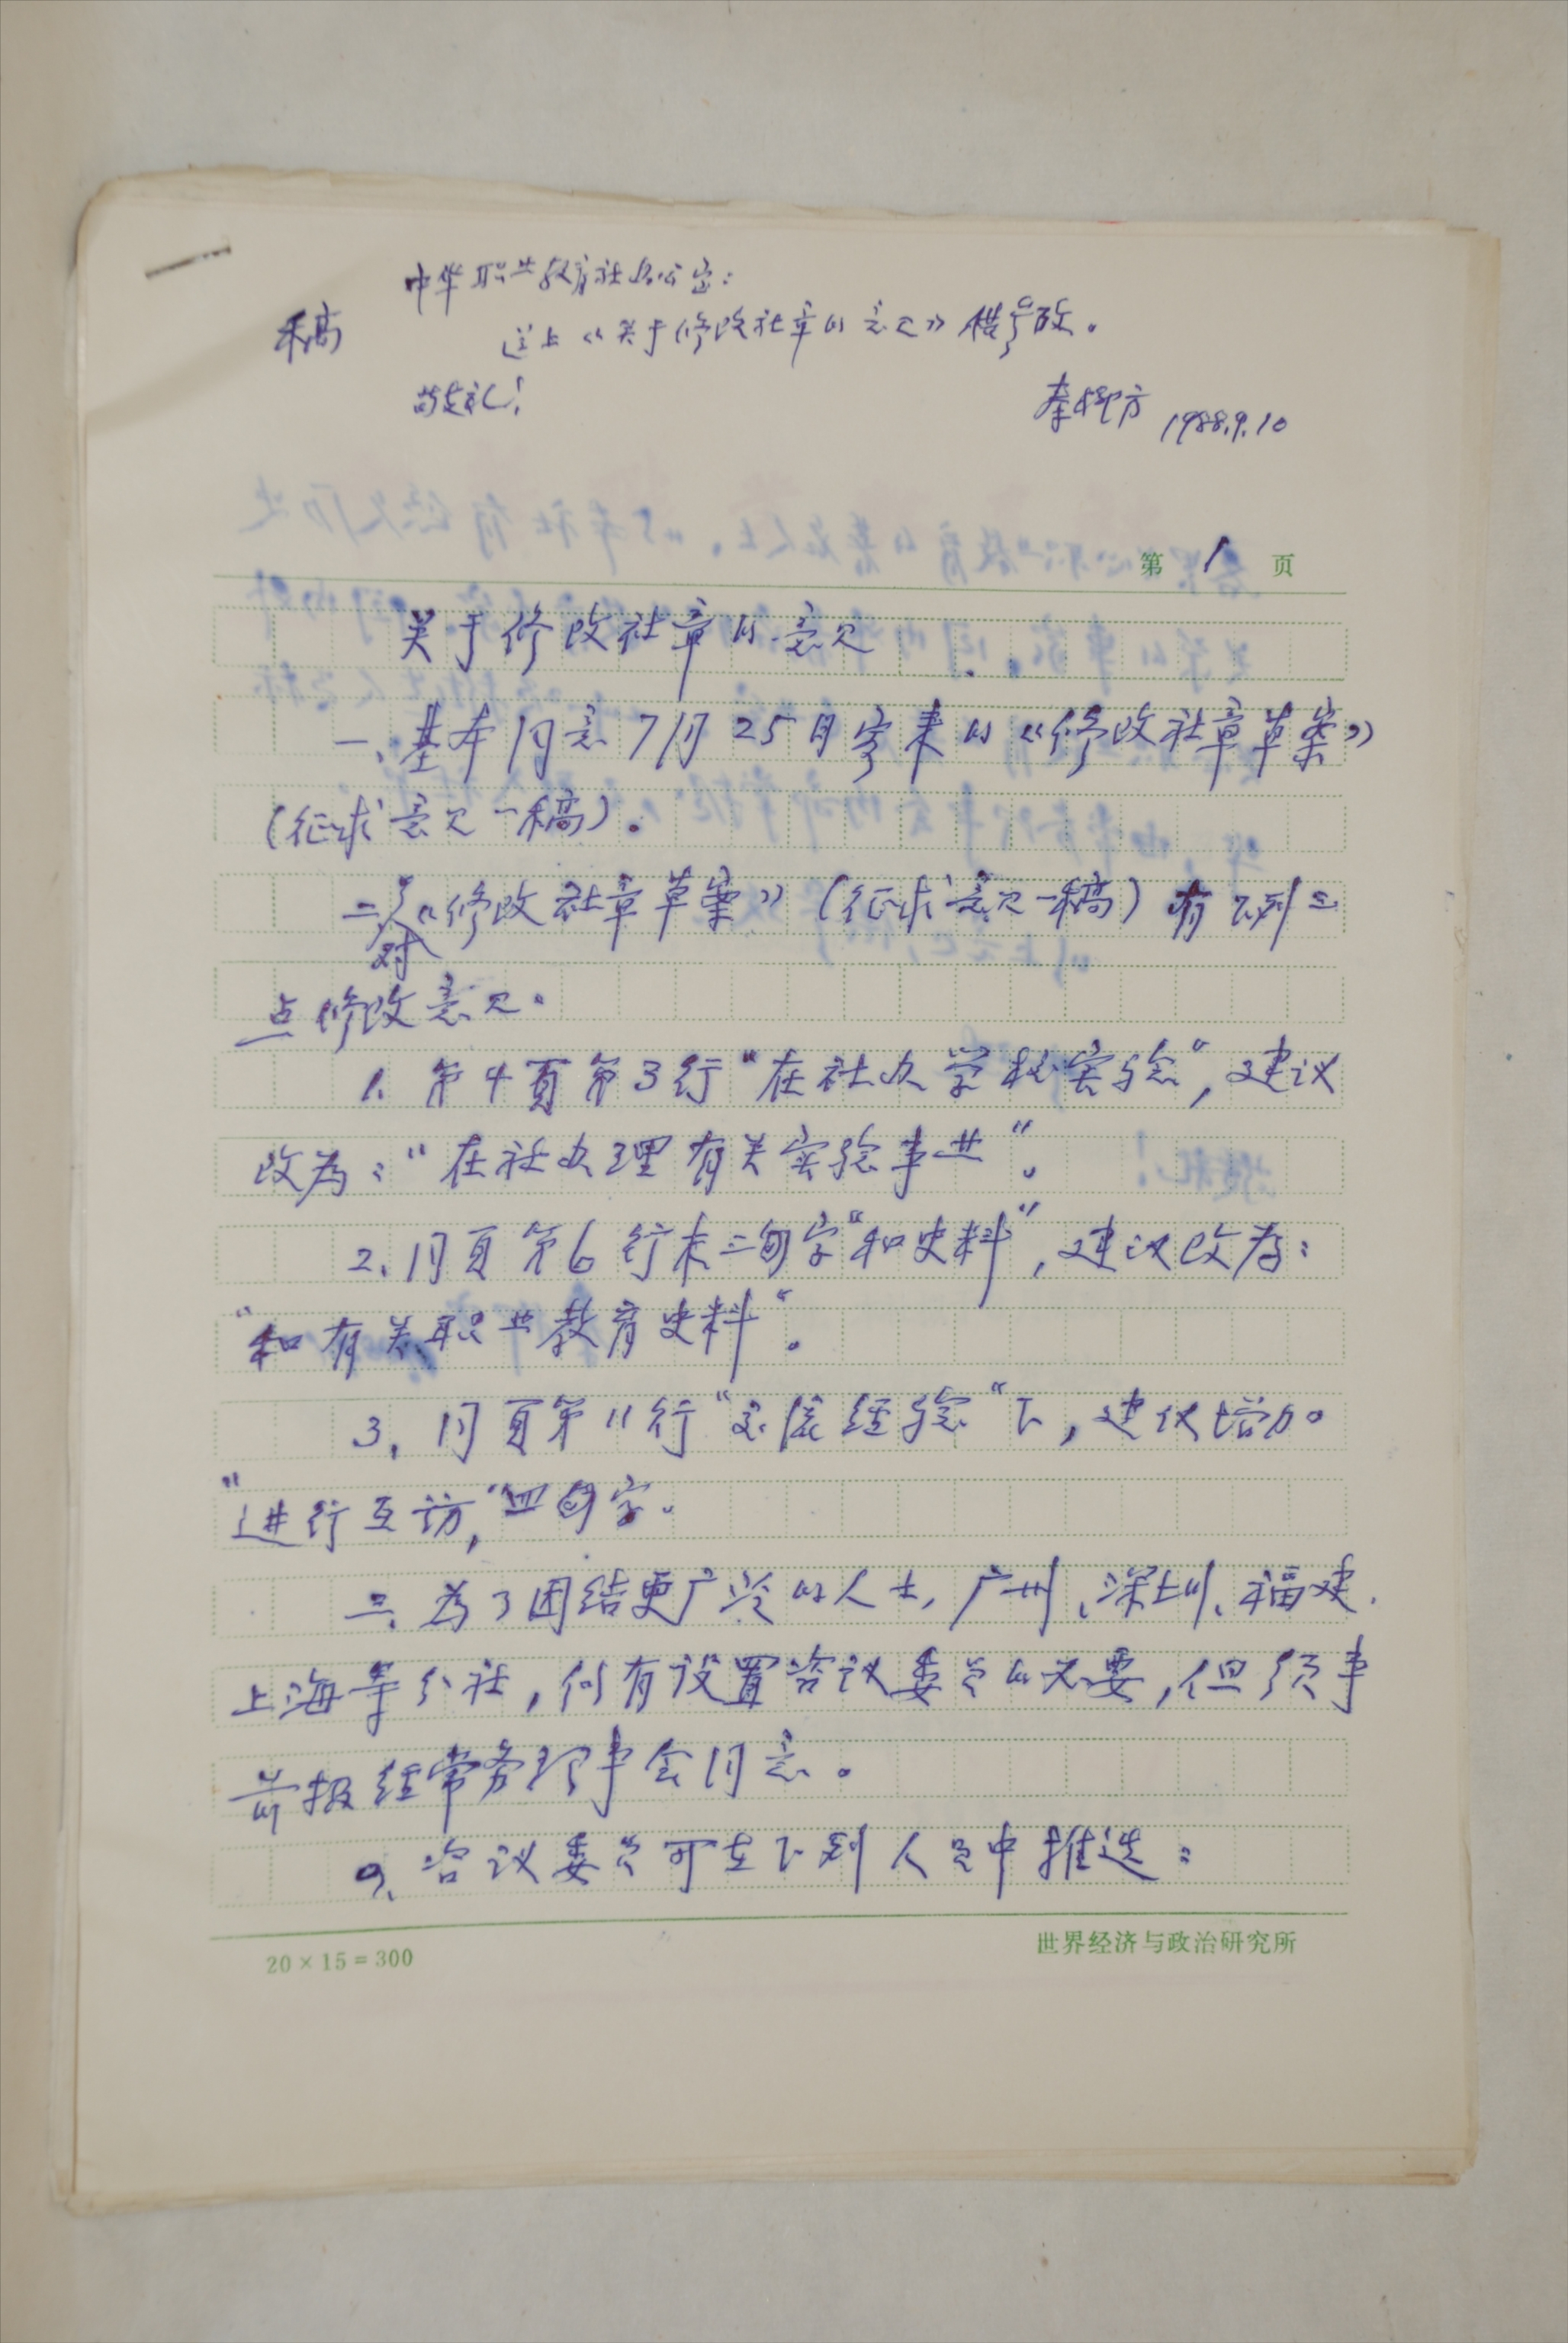 中华职业教育社办公室:
稿
送上《关于修改社章的意见》供参改。
敬礼!
秦柳方 1988.9.10
第 1 页
关于修改社章的意见
一、基本同意7月25日寄来的《修改社章草案》
(征求意见一稿)。
二、对《修改社章草案》(征求意见一稿)有下列三
点修改意见。
1. 第4页第3行“在社办学校实验”,建议
改为:“在社办理有关实验事业”。
2、同页第6行末三个字“和史料”,建议改为:
“和有关职业教育史料”。
3、同页第11行“交流经验“下,建议增加
“进行互访,”四个字。
三、为了团结更广泛的人士,广州、深圳、福建、
上海等分社,仍有设置咨议委员的必要,但须事
前报经常务理事会同意。
咨议委员可在下列人员中推选:
20×15=300
世界经济与政治研究所